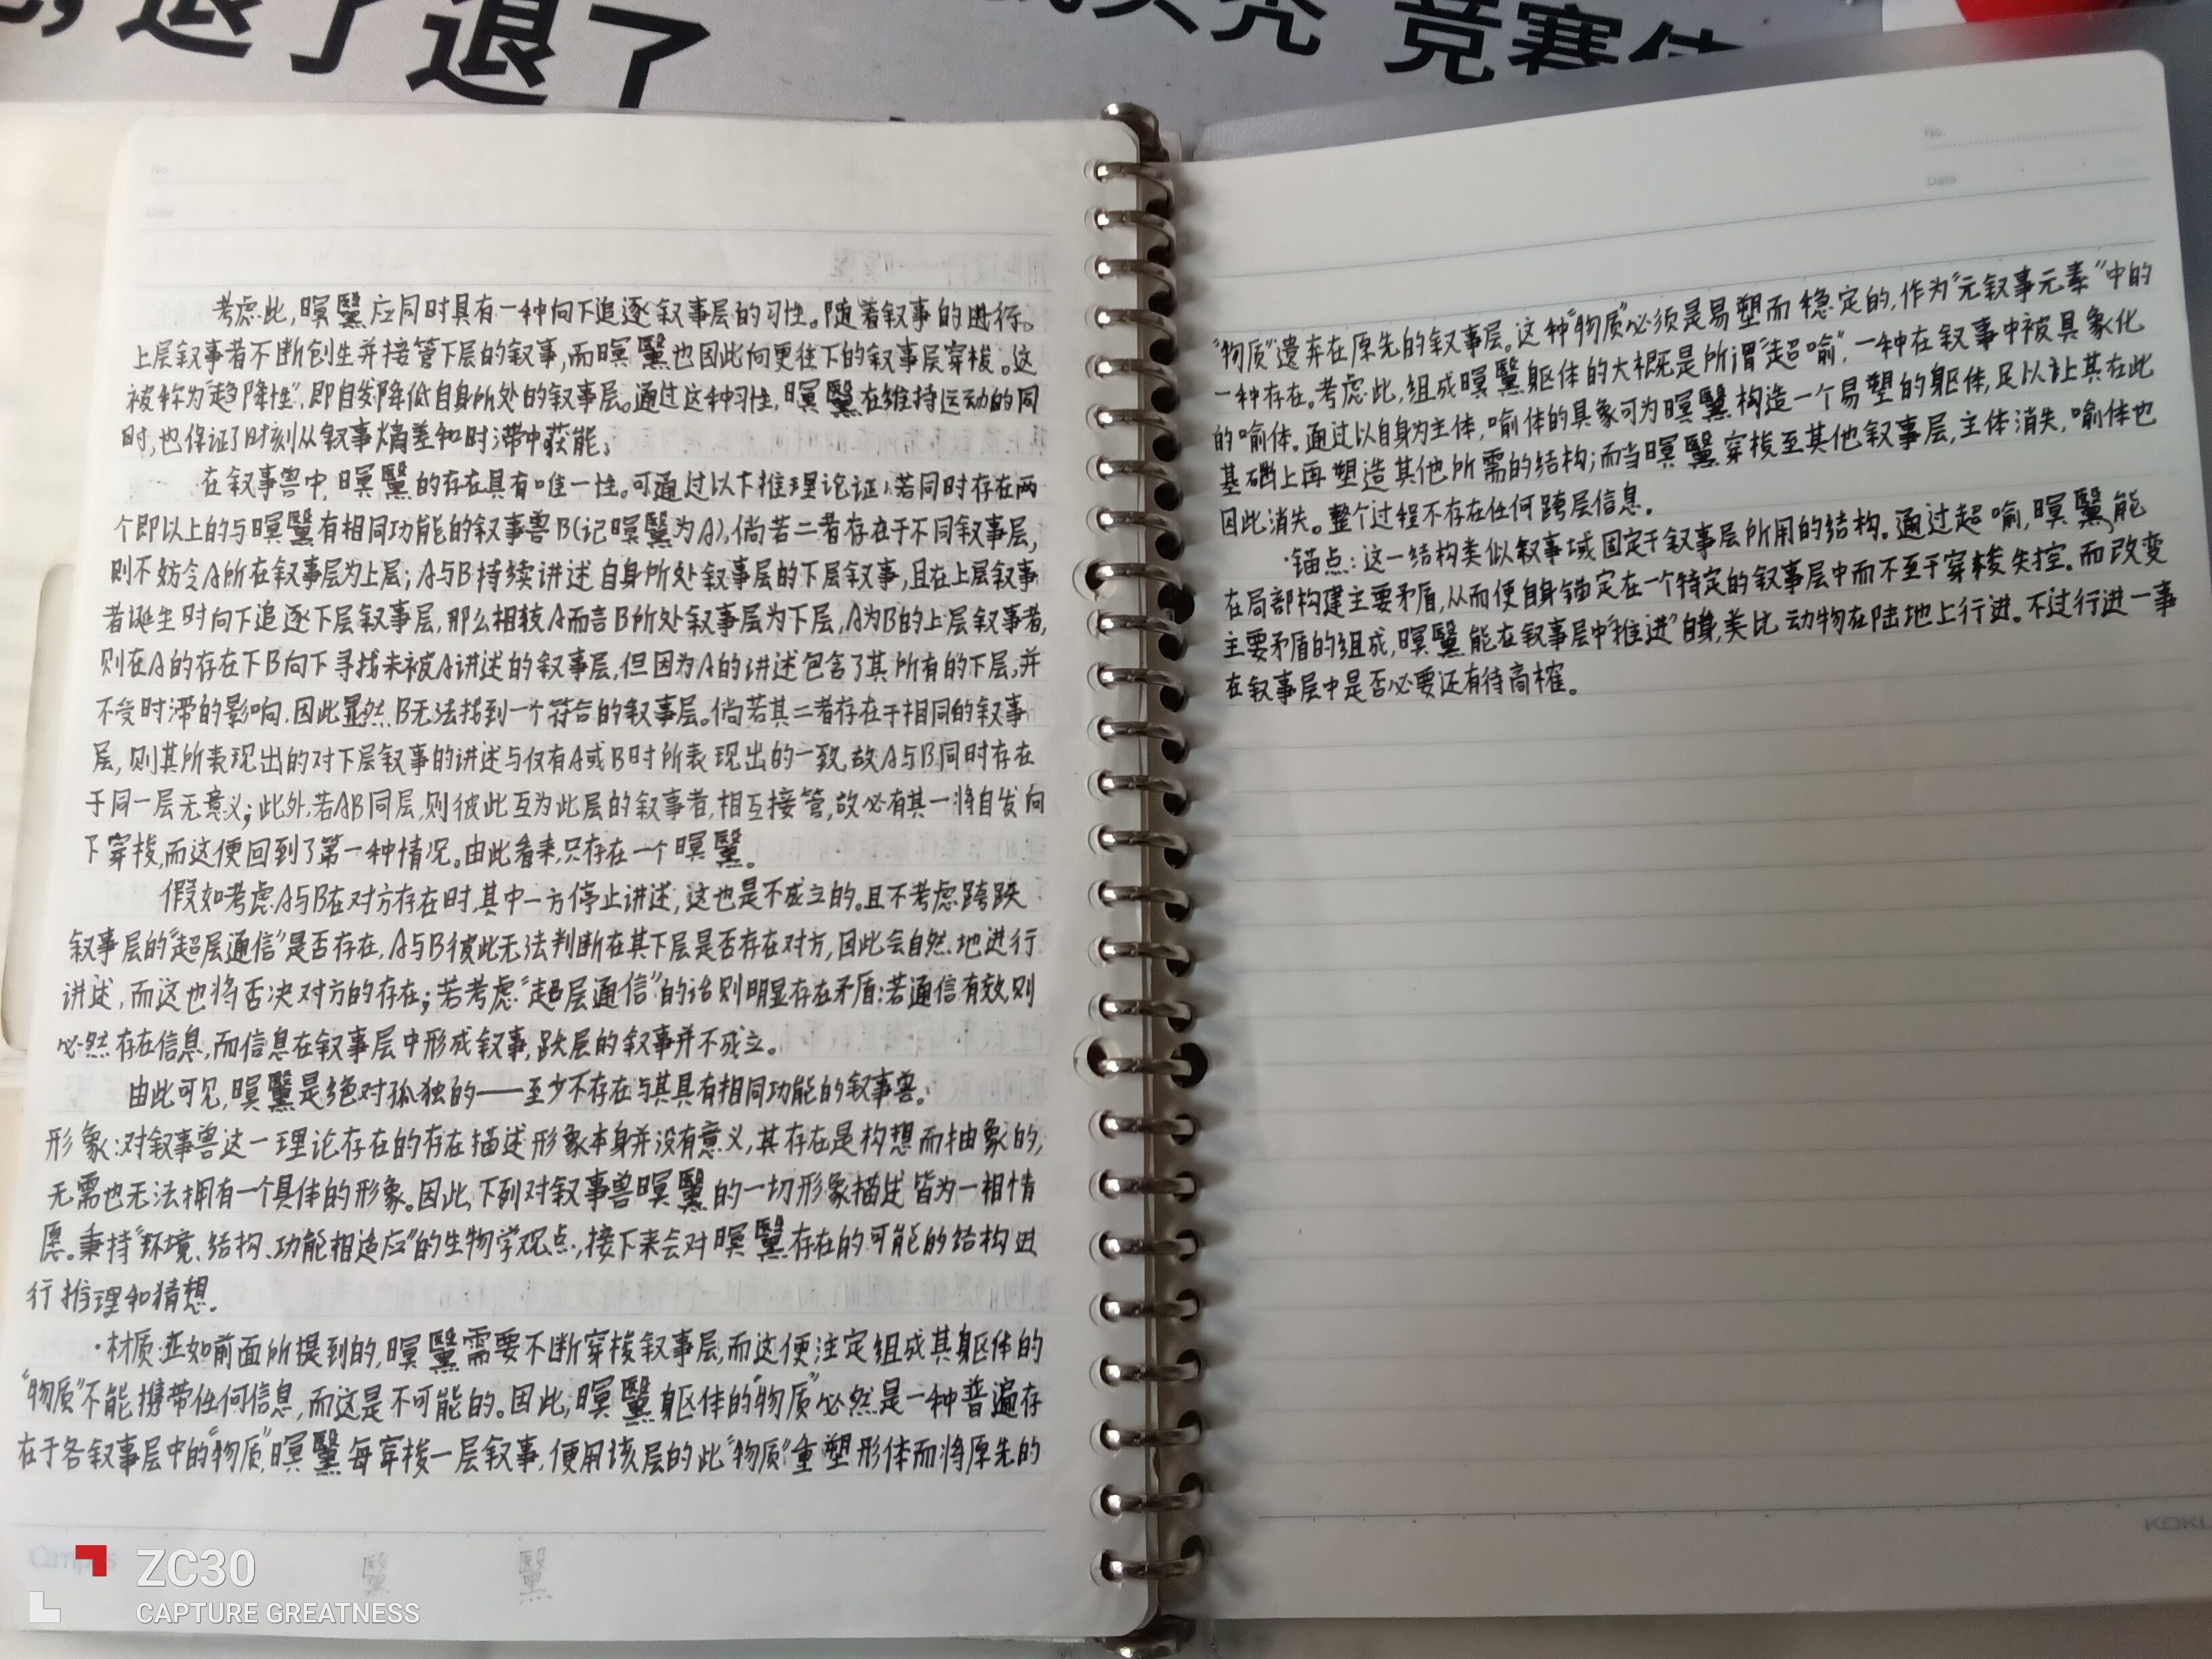 退了退了
竞赛
No.
Date
考虑此,暝黳应同时具有一种向下追逐叙事层的习性。随着叙事的进行。
上层叙事者不断创生并接管下层的叙事,而暝黳也因此向更往下的叙事层穿梭。这
被称为“趋降性”,即自发降低自身所处的叙事层。通过这种习性,暝黳在维持运动的同
时,也保证了时刻从叙事熵差和时滞中获能。
在叙事兽中,暝黳的存在具有唯一性。可通过以下推理论证:若同时存在两
个即以上的与暝黳有相同功能的叙事兽B(记暝黳为A),倘若二者存在于不同叙事层,
则不妨令A所在叙事层为上层;A与B持续讲述自身所处叙事层的下层叙事,且在上层叙事
者诞生时向下追逐下层叙事层,那么相较A而言B所处叙事层为下层,A为B的上层叙事者,
则在A的存在下B向下寻找未被A讲述的叙事层,但因为A的讲述包含了其所有的下层,并
不受时滞的影响,因此显然B无法找到一个符合的叙事层。倘若其二者存在于相同的叙事
层,则其所表现出的对下层叙事的讲述与仅有A或B时所表现出的一致,故A与B同时存在
于同一层无意义;此外,若AB同层,则彼此互为此层的叙事者,相互接管,故必有其一将自发向
下穿梭,而这便回到了第一种情况。由此看来,只存在一个暝黳。
假如考虑A与B在对方存在时,其中一方停止讲述,这也是不成立的。且不考虑跨跃
叙事层的“超层通信”是否存在,A与B彼此无法判断在其下层是否存在对方,因此会自然地进行
讲述,而这也将否决对方的存在;若考虑“超层通信”的话则明显存在矛盾:若通信有效,则
必然存在信息,而信息在叙事层中形成叙事,跃层的叙事并不成立。
由此可见,暝黳是绝对孤独的——至少不存在与其具有相同功能的叙事兽。
形象:对叙事兽这一理论存在的存在描述形象本身并没有意义,其存在是构想而抽象的,
无需也无法拥有一个具体的形象。因此,下列对叙事兽暝黳的一切形象描述皆为一相情
愿。秉持“环境、结构、功能相适应”的生物学观点,接下来会对暝黳存在的可能的结构进
行推理和猜想。
·材质:正如前面所提到的,暝黳需要不断穿梭叙事层,而这便注定组成其躯体的
“物质”不能携带任何信息,而这是不可能的。因此,暝黳躯体的“物质”必然是一种普遍存
在于各叙事层中的“物质”,暝黳每穿梭一层叙事,便用该层的此“物质”重塑形体而将原先的
黳 黳
Campus
ZC30
CAPTURE GREATNESS
No.
Date
“物质”遗弃在原先的叙事层。这种“物质”必须是易塑而稳定的,作为“元叙事元素”中的
一种存在。考虑此,组成暝黳躯体的大概既是所谓“超喻”,一种在叙事中被具象化
的喻体。通过以自身为主体,喻体的具象可为暝黳构造一个易塑的躯体,足以让其在此
基础上再塑造其他所需的结构;而当暝黳穿梭至其他叙事层,主体消失,喻体也
因此消失。整个过程不存在任何跨层信息。
·锚点:这一结构类似叙事域固定于叙事层所用的结构。通过超喻,暝黳能
在局部构建主要矛盾,从而使自身锚定在一个特定的叙事层中而不至于穿梭失控。而改变
主要矛盾的组成,暝黳能在叙事层中“推进”自身,类比动物在陆地上行进。不过行进一事
在叙事层中是否必要还有待商榷。